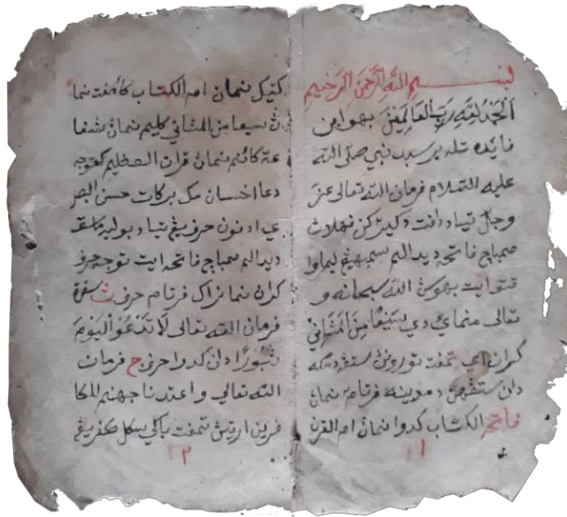 بسم الله الرحمن الرحيم
الحمد لله رب العالمين بهوا اين
فايده تله برسبد نبي صلى الله
عليه السلام فرمان الله تعالى عز
وجل تياد دافت دكيركن فهلاث
ممباچ فاتحه ديدالم سمبهيڠ ليما وا
قتو ايت بهوس الله سبحانه و
تعالى منماي دي سبعا من المثاني
كران اي تمفت تورون مكه
دان دمدينه فرتام نمان
فاتحة الكتاب كدوا نمان ام القرن
١
كتيك نمان ام الكتاب كأمفت نما
ن سبعا من المثاني كليم نمان شفا
عة كانم نمان قران العظيم كتوجه
دعا احسان مك بركات حسن البصر
ي ادفون حرف يڠ تياد بوليه ماسق
ديدالم ممباچ فاتحه ايت توجه حرف
كران نما نراك فرتام حرف ث سفرة
فرمان الله تعالى لا تدعوا اليوم
ثبورا دان كدوا حرف ج فرمان
الله تعالى واعتدنا جهنم للكا
فرين ارتيث تمفت باكي سكل كفر يڠ
٢